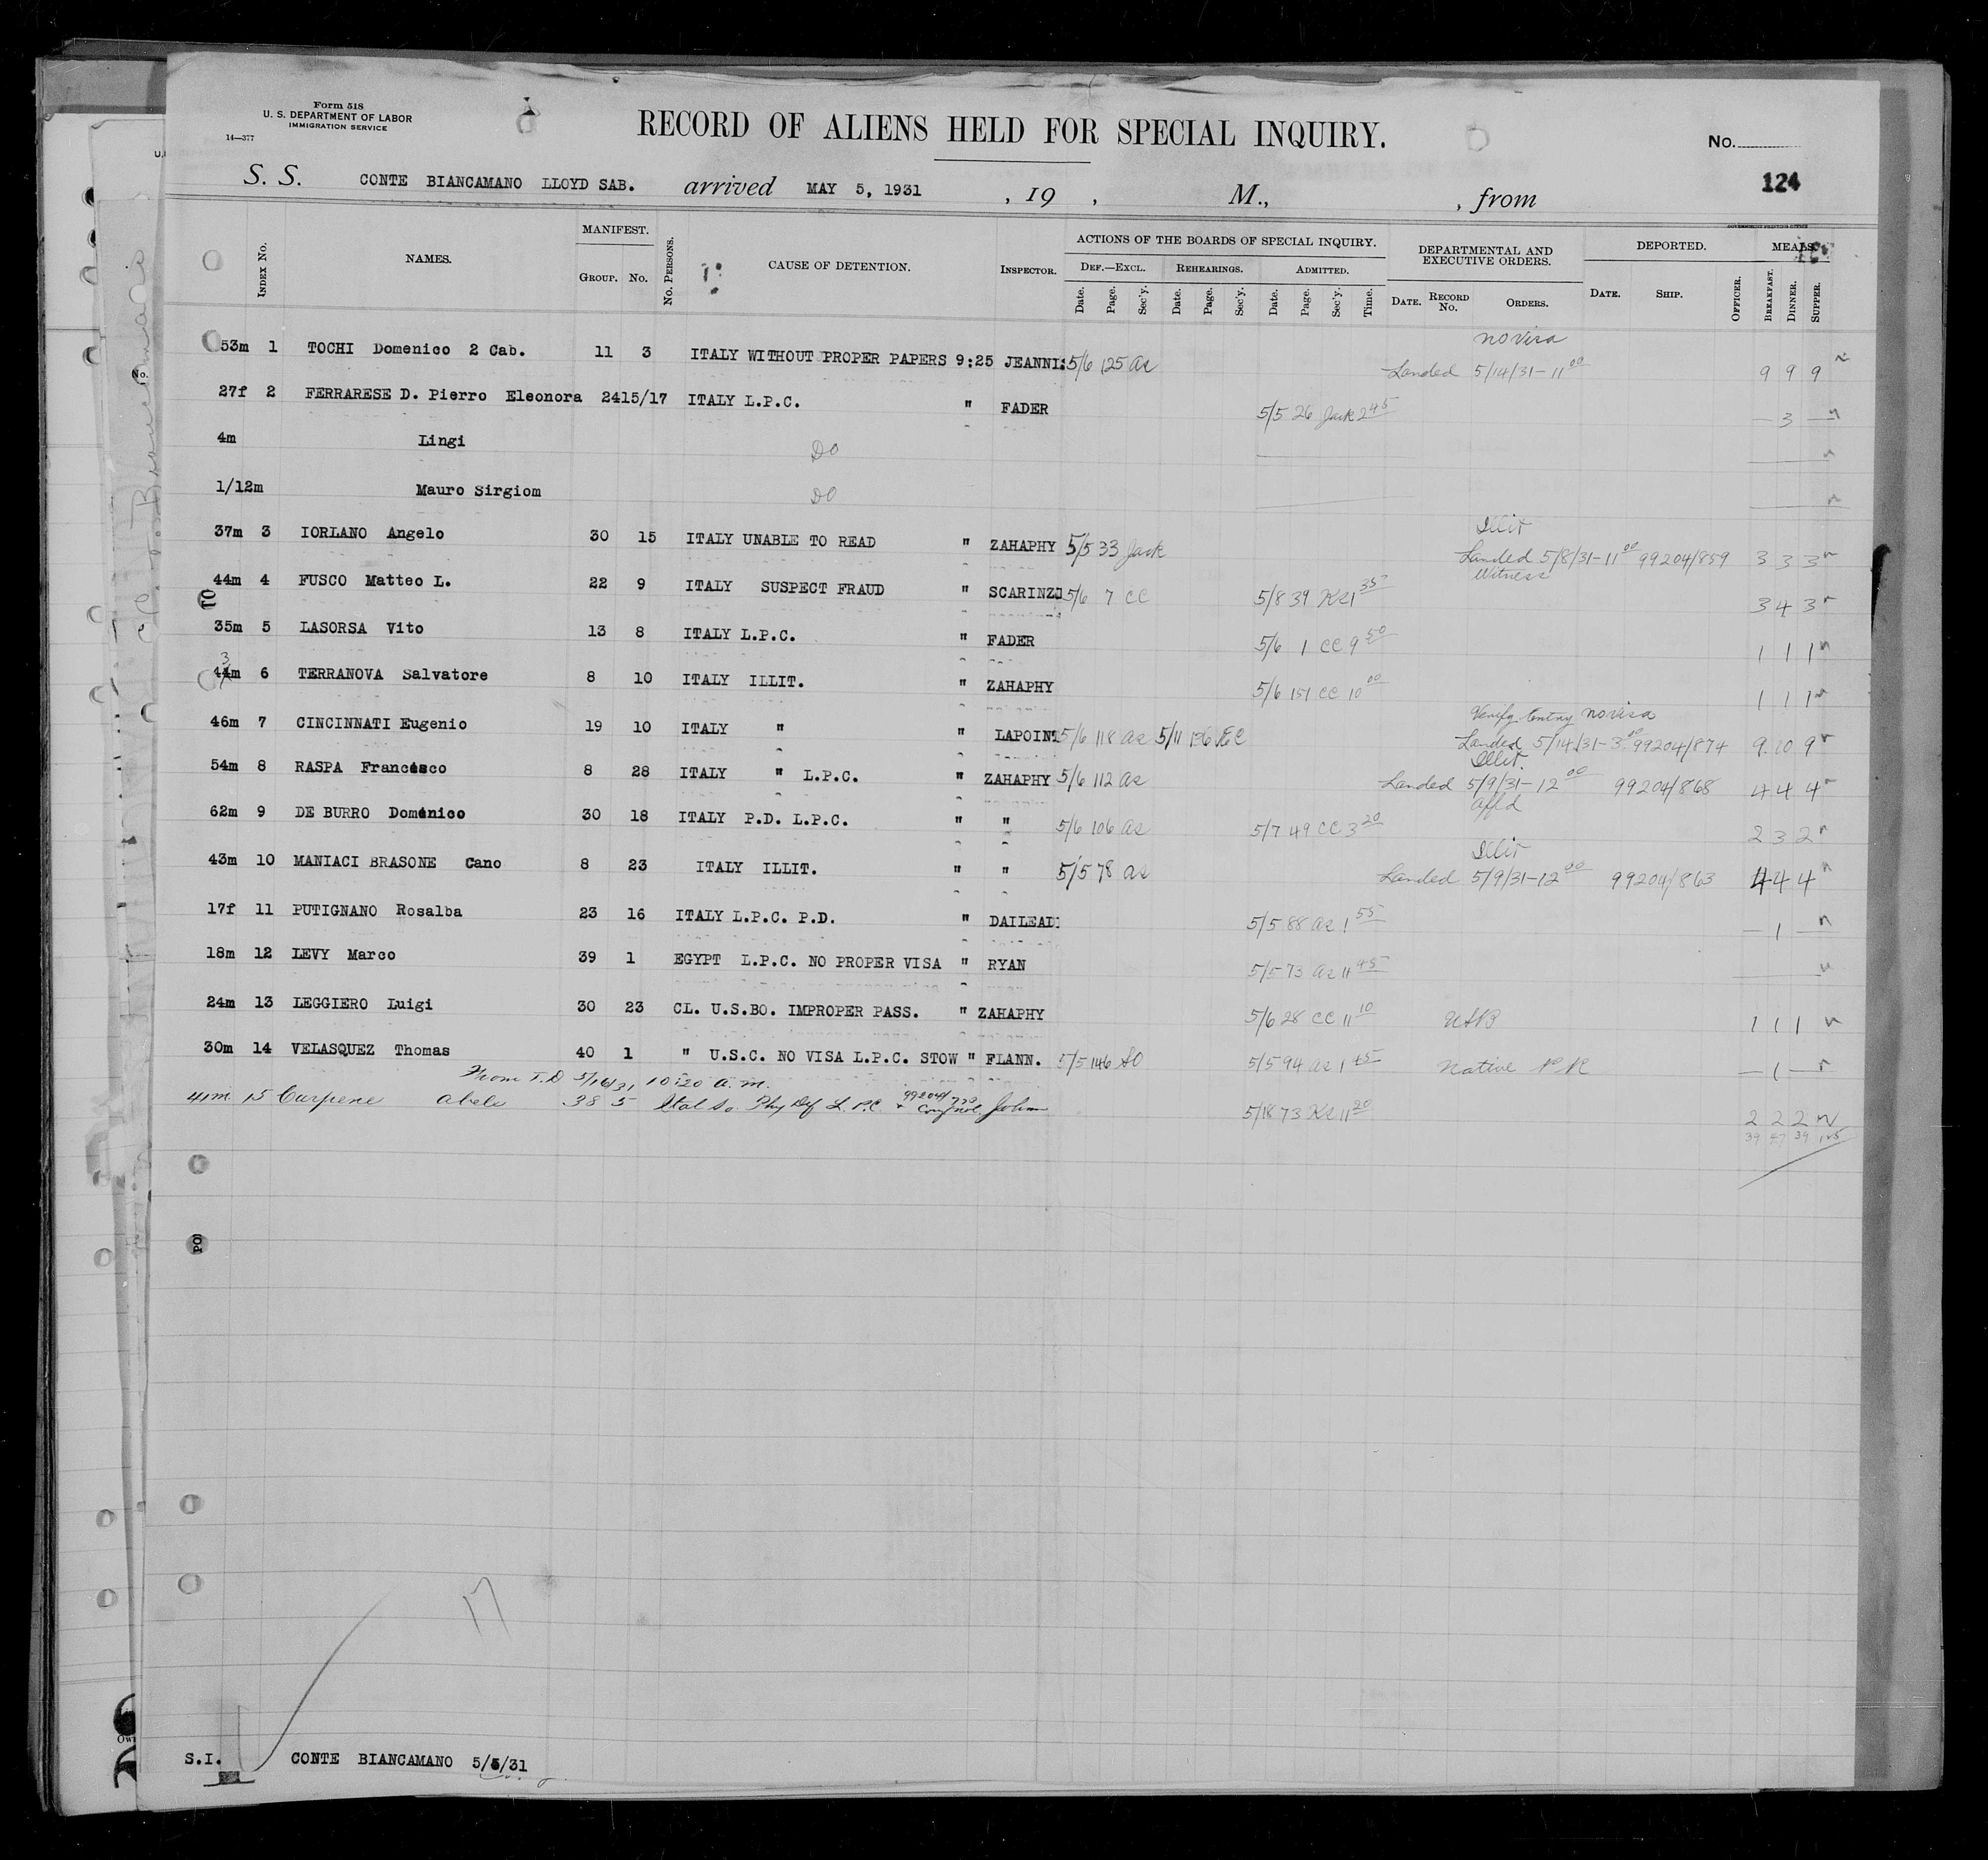 Form 518
U. S. DEPARTMENT OF LABOR
IMMIGRATION SERVICE
14—377
RECORD OF ALIENS HELD FOR SPECIAL INQUIRY.
No.
124
S. S. CONTE BIANCAMANO LLOYD SAB. arrived MAY 5, 1931 , 19 , M., , from
GOVERNMENT PRINTING OFFICE
INDEX No. NAMES. MANIFEST. GROUP. No. No. PERSONS. CAUSE OF DETENTION. INSPECTOR. ACTIONS OF THE BOARDS OF SPECIAL INQUIRY. DEPARTMENTAL AND EXECUTIVE ORDERS. DEPORTED. MEALS.
DEF.—EXCL. REHEARINGS. ADMITTED.
Date. Page. Sec'y. Date. Page. Sec'y. Date. Page. Sec'y. Time. DATE. RECORD No. ORDERS. DATE. SHIP. OFFICER. BREAKFAST. DINNER. SUPPER.
no visa
53m 1 TOCHI Domenico 2 Cab. 11 3 ITALY WITHOUT PROPER PAPERS 9:25 JEANNI 5/6 125 as Landed 5/14/31-11 00 9 9 9
27f 2 FERRARESE D. Pierro Eleonora 24 15/17 ITALY L.P.C. " FADER 5/5 26 Jack 2 45 — 3 —
4m Lingi DO
1/12m Mauro Sirgiom DO
Illit
37m 3 IORLANO Angelo 30 15 ITALY UNABLE TO READ " ZAHAPHY 5/5 33 Jack Landed 5/8/31-11 00 99204/859 3 3 3
Witness
44m 4 FUSCO Matteo L. 22 9 ITALY SUSPECT FRAUD " SCARINZI 5/6 7 CC 5/8 39 Ks 1 35 3 4 3
35m 5 LASORSA Vito 13 8 ITALY L.P.C. " FADER 5/6 1 CC 9 50 1 1 1
3
44m 6 TERRANOVA Salvatore 8 10 ITALY ILLIT. " ZAHAPHY 5/6 151 CC 10 00 1 1 1
Verify Entry no visa
46m 7 CINCINNATI Eugenio 19 10 ITALY " " LAPOINT 5/6 118 as 5/11 136 Landed 5/14/31-3 00 99204/874 9 10 9
Illit.
54m 8 RASPA Francesco 8 28 ITALY " L.P.C. " ZAHAPHY 5/6 112 as Landed 5/9/31-12 00 99204/868 4 4 4
affd
62m 9 DE BURRO Domenico 30 18 ITALY P.D. L.P.C. " " 5/6 106 as 5/7 49 CC 3 20 2 3 2
Illit
43m 10 MANIACI BRASONE Cano 8 23 ITALY ILLIT. " " 5/5 78 as Landed 5/9/31-12 00 99204/863 4 4 4
17f 11 PUTIGNANO Rosalba 23 16 ITALY L.P.C. P.D. " DAILEAD 5/5 88 as 1 55 — 1 —
18m 12 LEVY Marco 39 1 EGYPT L.P.C. NO PROPER VISA " RYAN 5/5 73 as 11 45
24m 13 LEGGIERO Luigi 30 23 CL. U.S.BO. IMPROPER PASS. " ZAHAPHY 5/6 28 CC 11 10 USB 1 1 1
30m 14 VELASQUEZ Thomas 40 1 " U.S.C. NO VISA L.P.C. STOW " FLANN. 5/5 146 SO 5/5 94 as 1 45 Native P R — 1 —
From T.D 5/16/31 10:20 a.m.
41m 15 Curpene Abele 38 5 Ital So. Phy Def L.P.C. John 5/18 73 Ks 11 20 2 2 2
39 47 39 125
17
S.I. CONTE BIANCAMANO 5/5/31